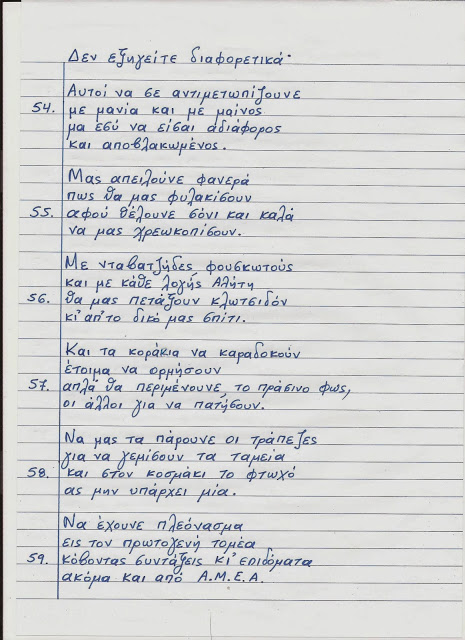 Δεν εξηγείτε διαφορετικά·
Αυτοί να σε αντιμετωπίζουνε
54. με μανία και με μαίνος
μα εσύ να είσαι αδιάφορος
και αποβλακωμένος.
Μας απειλούνε φανερά
πως θα μας φυλακίσουν
55. αφού θέλουνε σόνι και καλά
να μας χρεωκοπίσουν.
Με νταβατζήδες φουσκωτούς
και με κάθε λογής Αλήτη
56. θα μας πετάξουν κλωτσιδόν
κι' απ' το δικό μας σπίτι.
Και τα κοράκια να καραδοκούν
έτοιμα να ορμήσουν
57. απλά θα περιμένουνε το πράσινο φως,
οι άλλοι για να πατήσουν.
Να μας τα πάρουνε οι τράπεζες
για να γεμίσουν τα ταμεία
58. και στον κοσμάκι το φτωχό
ας μην υπάρχει μία.
Να έχουνε πλεόνασμα
εις τον πρωτογενή τομέα
59. κόβοντας συντάξεις κι' επιδόματα
ακόμα και από Α.Μ.Ε.Α.